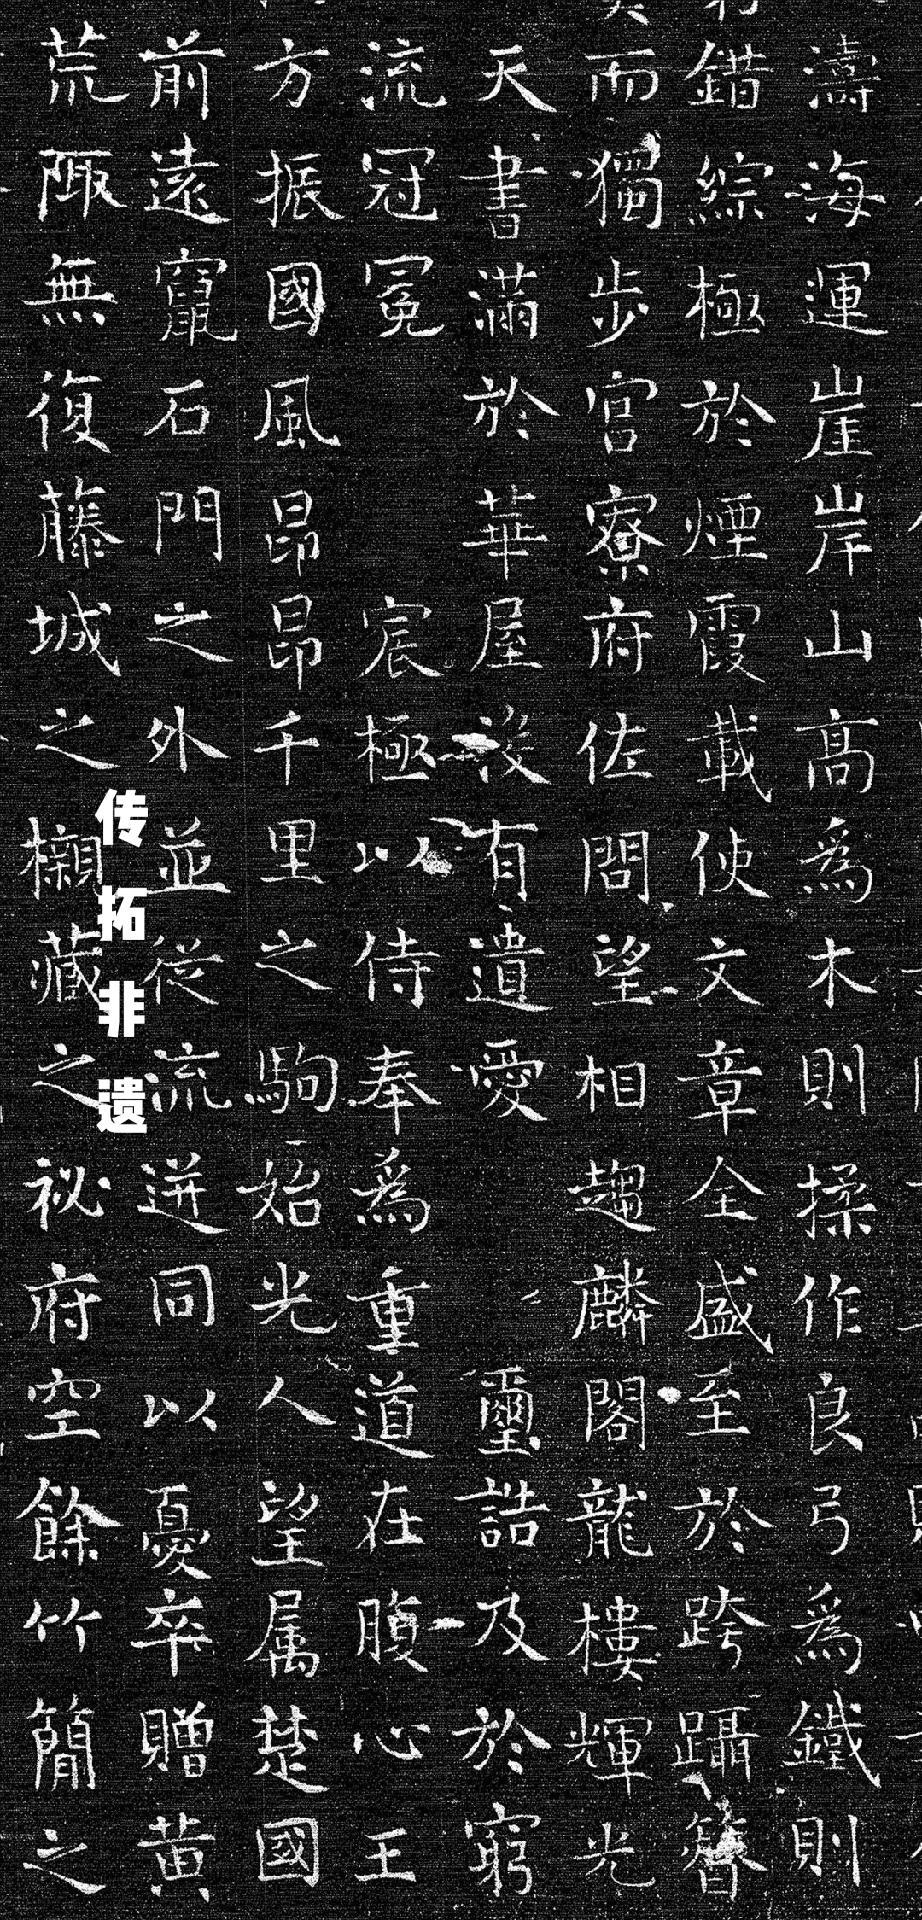 濤海運崖岸山高為木則揉作良弓為鐵則
錯綜極於煙霞載使文章全盛至於跨躡簪
而獨步宮寮府佐問望相趨麟閣龍樓輝光
天書滿於華屋後有遺愛璽誥及於窮
流冠冕宸極以侍奉為重道在腹心王
方振國風昂昂千里之駒始光人望属楚國
前遠竄石門之外並從流迸同以憂卒贈黃
荒陬無復藤城之櫬藏之祕府空餘竹簡之
传拓非遗